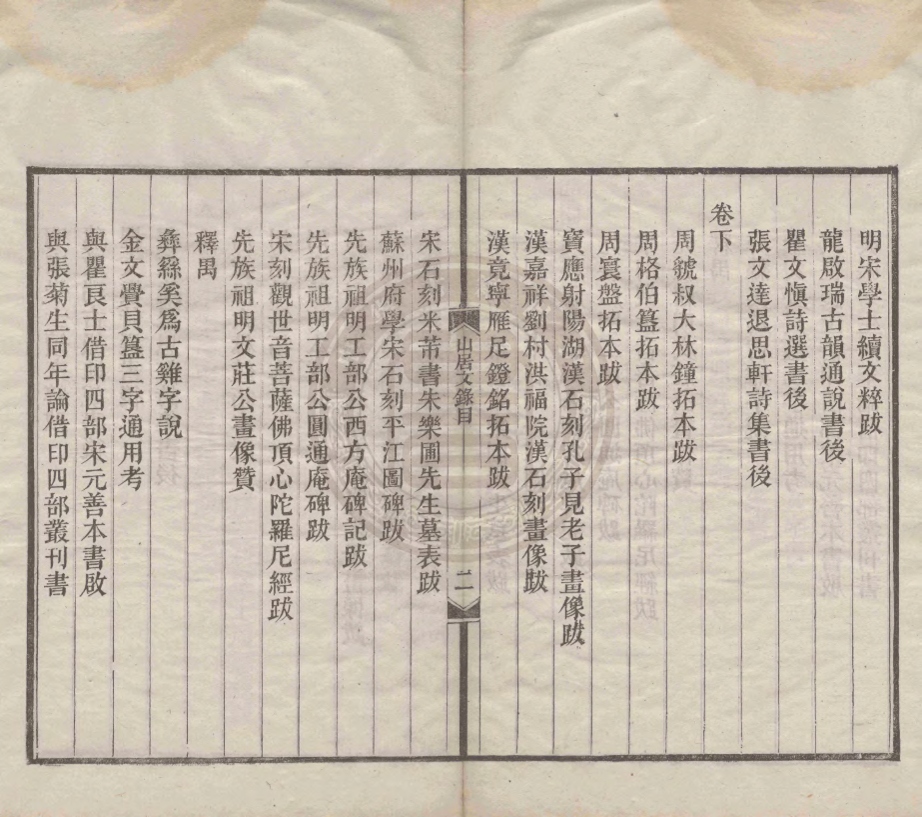 明宋學士續文粹跋
龍啟瑞古韻通說書後
瞿文愼詩選書後
張文達退思軒詩集書後
卷下
周虢叔大林鐘拓本跋
周格伯簋拓本跋
周寰盤拓本跋
寶應射陽湖漢石刻孔子見老子畫像跋
漢嘉祥劉村洪福院漢石刻畫像跋
漢竟寧雁足鐙銘拓本跋
山居文錄目
二
宋石刻米芾書朱樂圃先生墓表跋
蘇州府學宋石刻平江圖碑跋
先族祖明工部公西方庵碑記跋
先族祖明工部公圓通庵碑跋
宋刻觀世音菩薩佛頂心陀羅尼經跋
先族祖明文莊公畫像贊
釋禺
彝繇奚爲古雞字說
金文釁貝簋三字通用考
與瞿良士借印四部宋元善本書啟
與張菊生同年論借印四部叢刊書